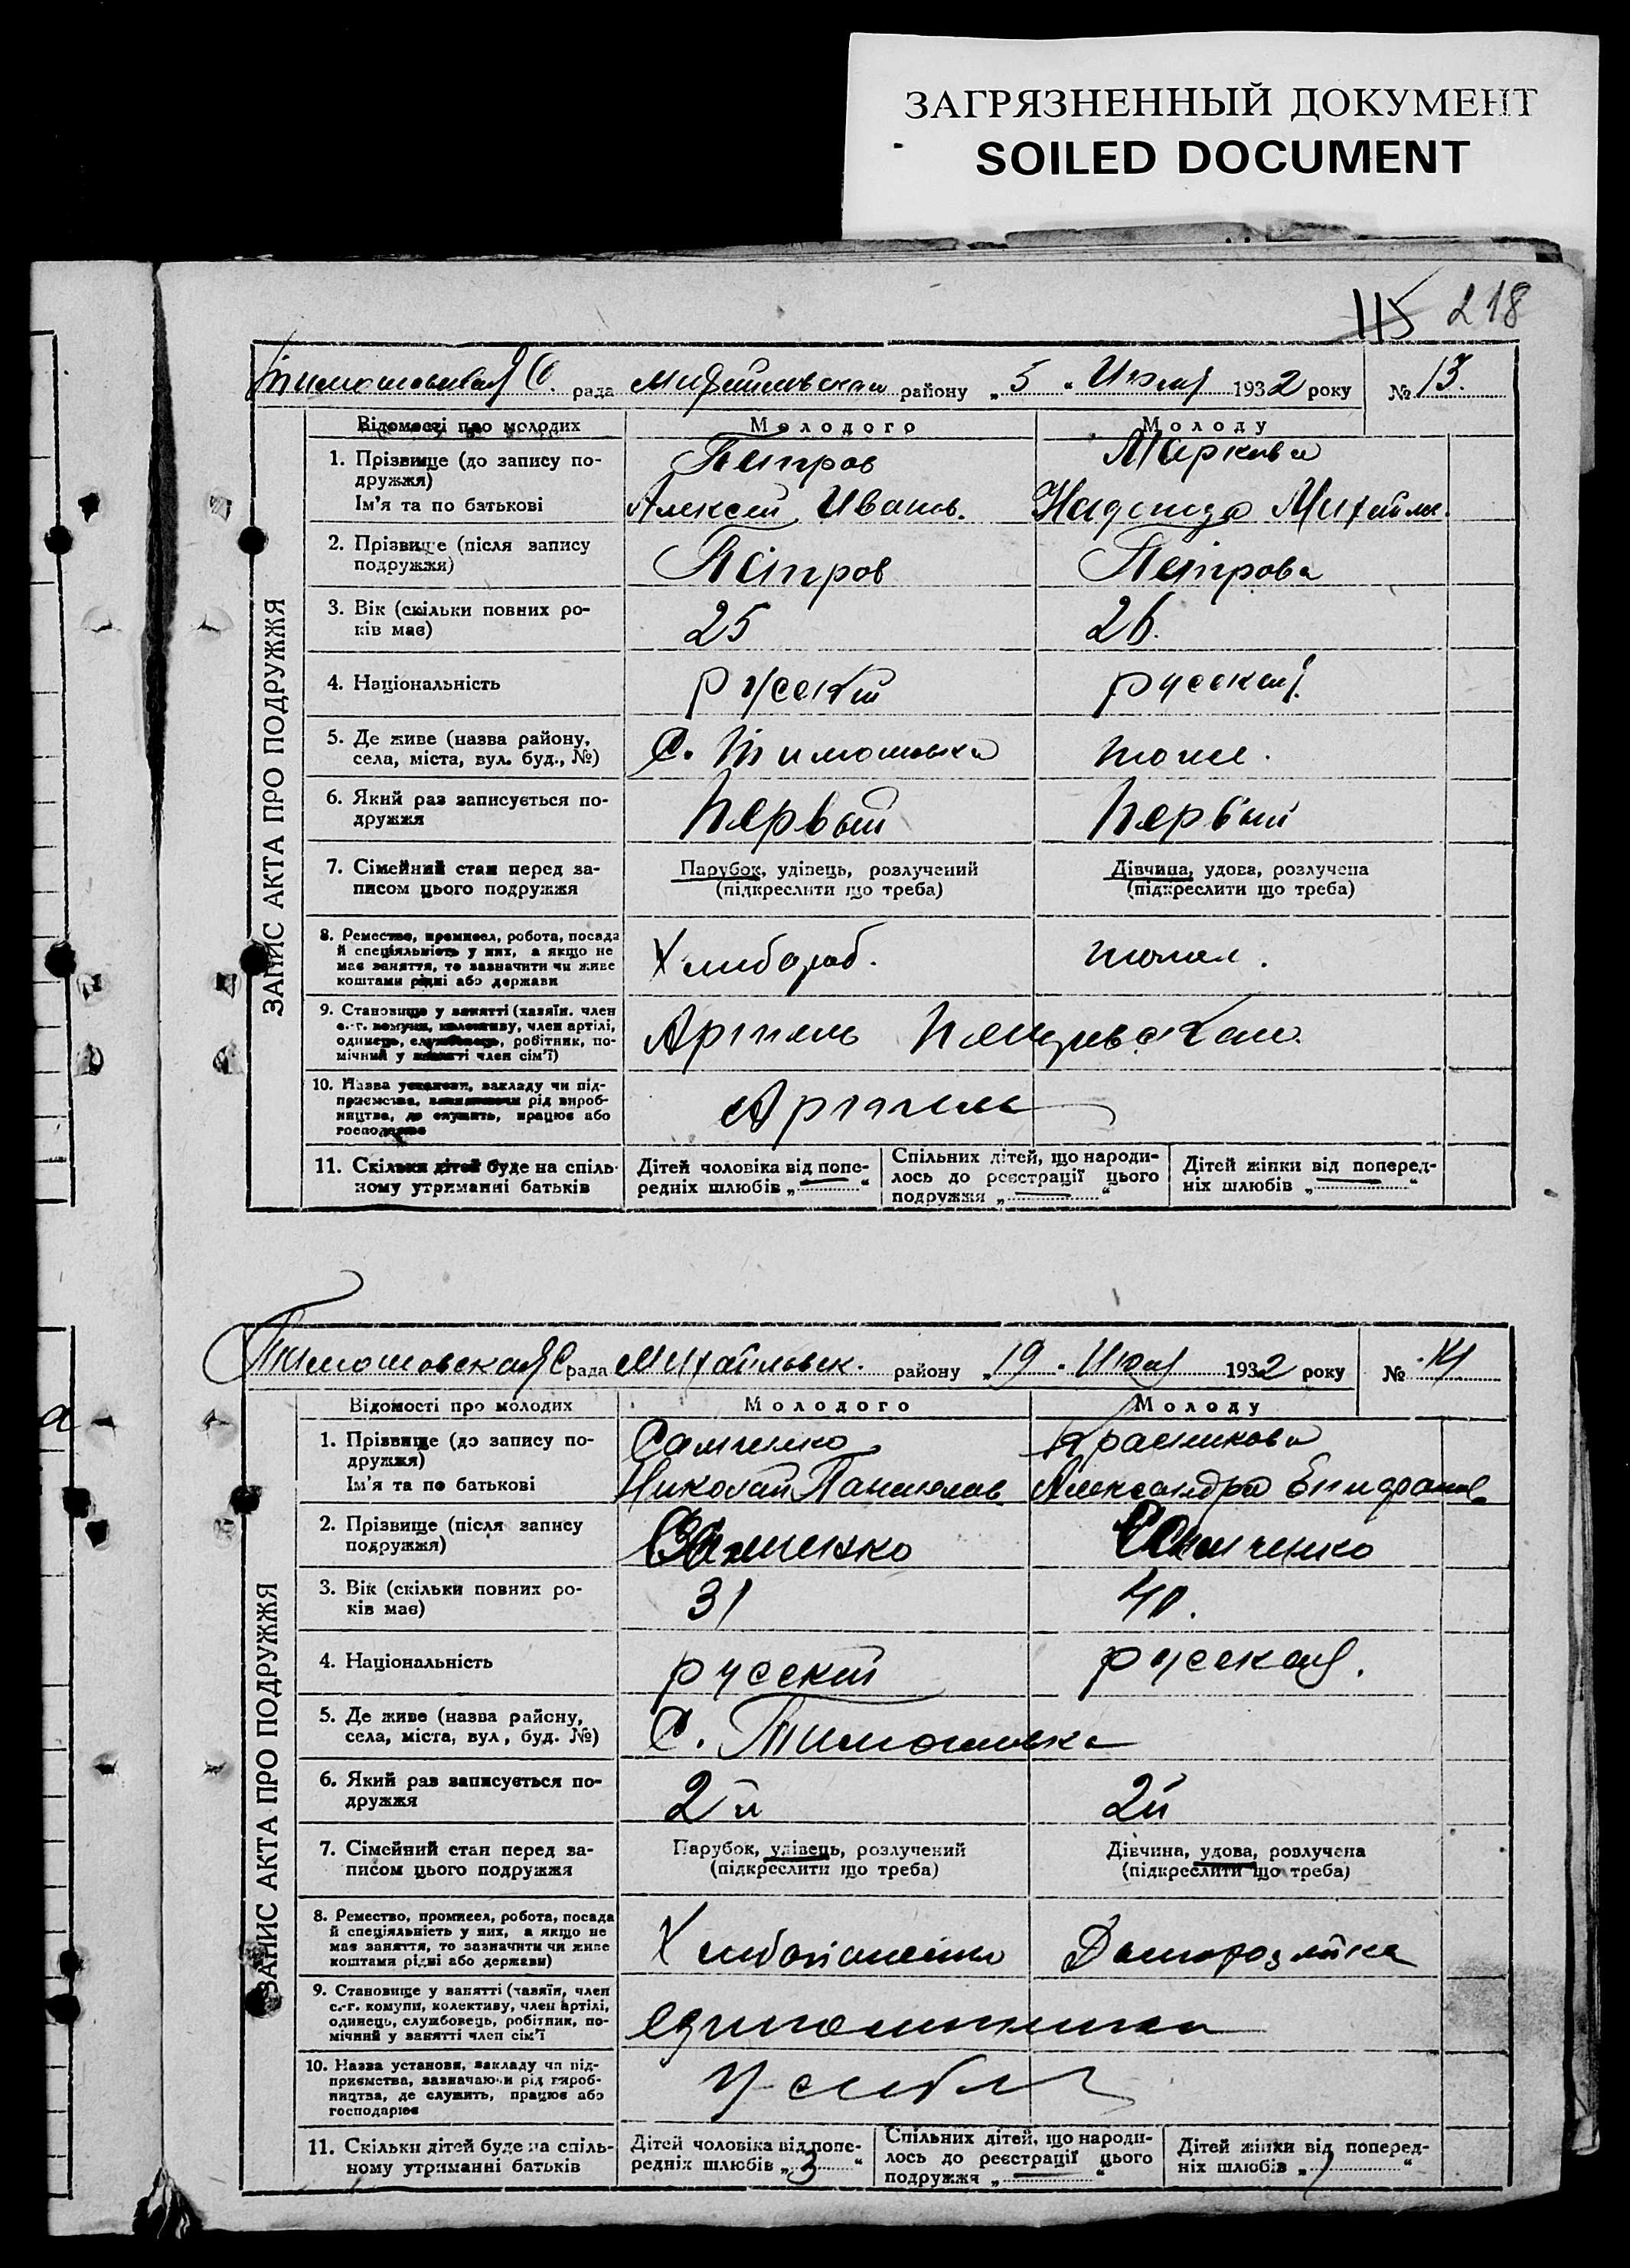 ЗАГРЯЗНЕННЫЙ ДОКУМЕНТ
SOILED DOCUMENT
115 218
С. рада района „5“ 1932 року № 13.
ЗАПИС АКТА ПРО ПОДРУЖЖЯ
Відомості про молодих Молодого Молоду
1. Прізвище (до запису подружжя) Петров Маркова
Ім’я та по батькові Алексей Иванов. Надежда Михайлов.
2. Прізвище (після запису подружжя) Петров Петрова
3. Вік (скільки повних років має) 25 26.
4. Національність русский русская
5. Де живе (назва району, села, міста, вул. буд., №) С. Тимошовка тоже.
6. Який раз записується подружжя Первый Первый
7. Сімейний стан перед записом цього подружжя Парубок, удівець, розлучений (підкреслити що треба) Дівчина, удова, розлучена (підкреслити що треба)
8. Ремество, промисел, робота, посада й спеціяльність у них, а якщо не має заняття, то зазначити чи живе коштами рідні або держави Хлебороб. тоже.
9. Становище у занятті (хазяїн, член с.-г. комуни, колективу, член артілі, одинець, службовець, робітник, помічний у занятті член сім’ї) Артель
10. Назва установи, закладу чи підприємства, зазначаючи рід виробництва, де служить, працює або господарює Артель
11. Скільки дітей буде на спільному утриманні батьків Дітей чоловіка від попередніх шлюбів „—“ Спільних дітей, що народилось до реєстрації цього подружжя „—“ Дітей жінки від попередніх шлюбів „—“
Тимошовская С рада Михайловск. району „19“ 1932 року № 14
ЗАПИС АКТА ПРО ПОДРУЖЖЯ
Відомості про молодих Молодого Молоду
1. Прізвище (до запису подружжя) Самченко Красникова
Ім’я та по батькові Николай Пантелов Александра
2. Прізвище (після запису подружжя) Самченко Самченко
3. Вік (скільки повних років має) 31 40.
4. Національність русский русская.
5. Де живе (назва району, села, міста, вул, буд. №) С. Тимошовка
6. Який раз записується подружжя 2й 2й
7. Сімейний стан перед записом цього подружжя Парубок, удівець, розлучений (підкреслити що треба) Дівчина, удова, розлучена (підкреслити що треба)
8. Ремество, промисел, робота, посада й спеціяльність у них, а якщо не має заняття, то зазначити чи живе коштами рідні або держави) Домохозяйка
9. Становище у занятті (хазяїн, член с.-г. комуни, колективу, член артілі, одинець, службовець, робітник, помічний у занятті член сім’ї
10. Назва установи, закладу чи підприємства, зазначаючи рід виробництва, де служить, працює або господарює У себя
11. Скільки дітей буде на спільному утриманні батьків Дітей чоловіка від попередніх шлюбів „3“ Спільних дітей, що народилось до реєстрації цього подружжя „—“ Дітей жінки від попередніх шлюбів „1“